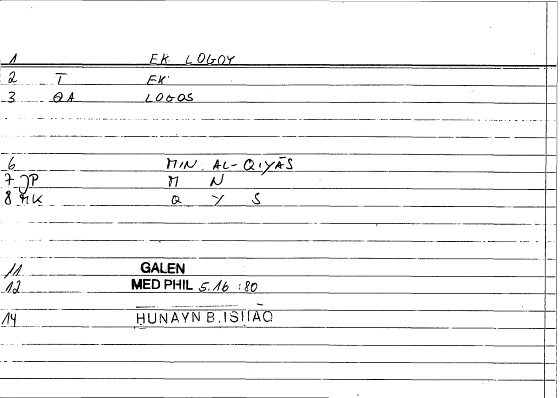 1 EK LOGOY
2 T EK
3 QA LOGOS
6 MIN AL-QIYĀS
7 JP M N
8 MK Q Y S
11 GALEN
12 MED PHIL 5.16 :80
14 HUNAYN B.ISHAQ